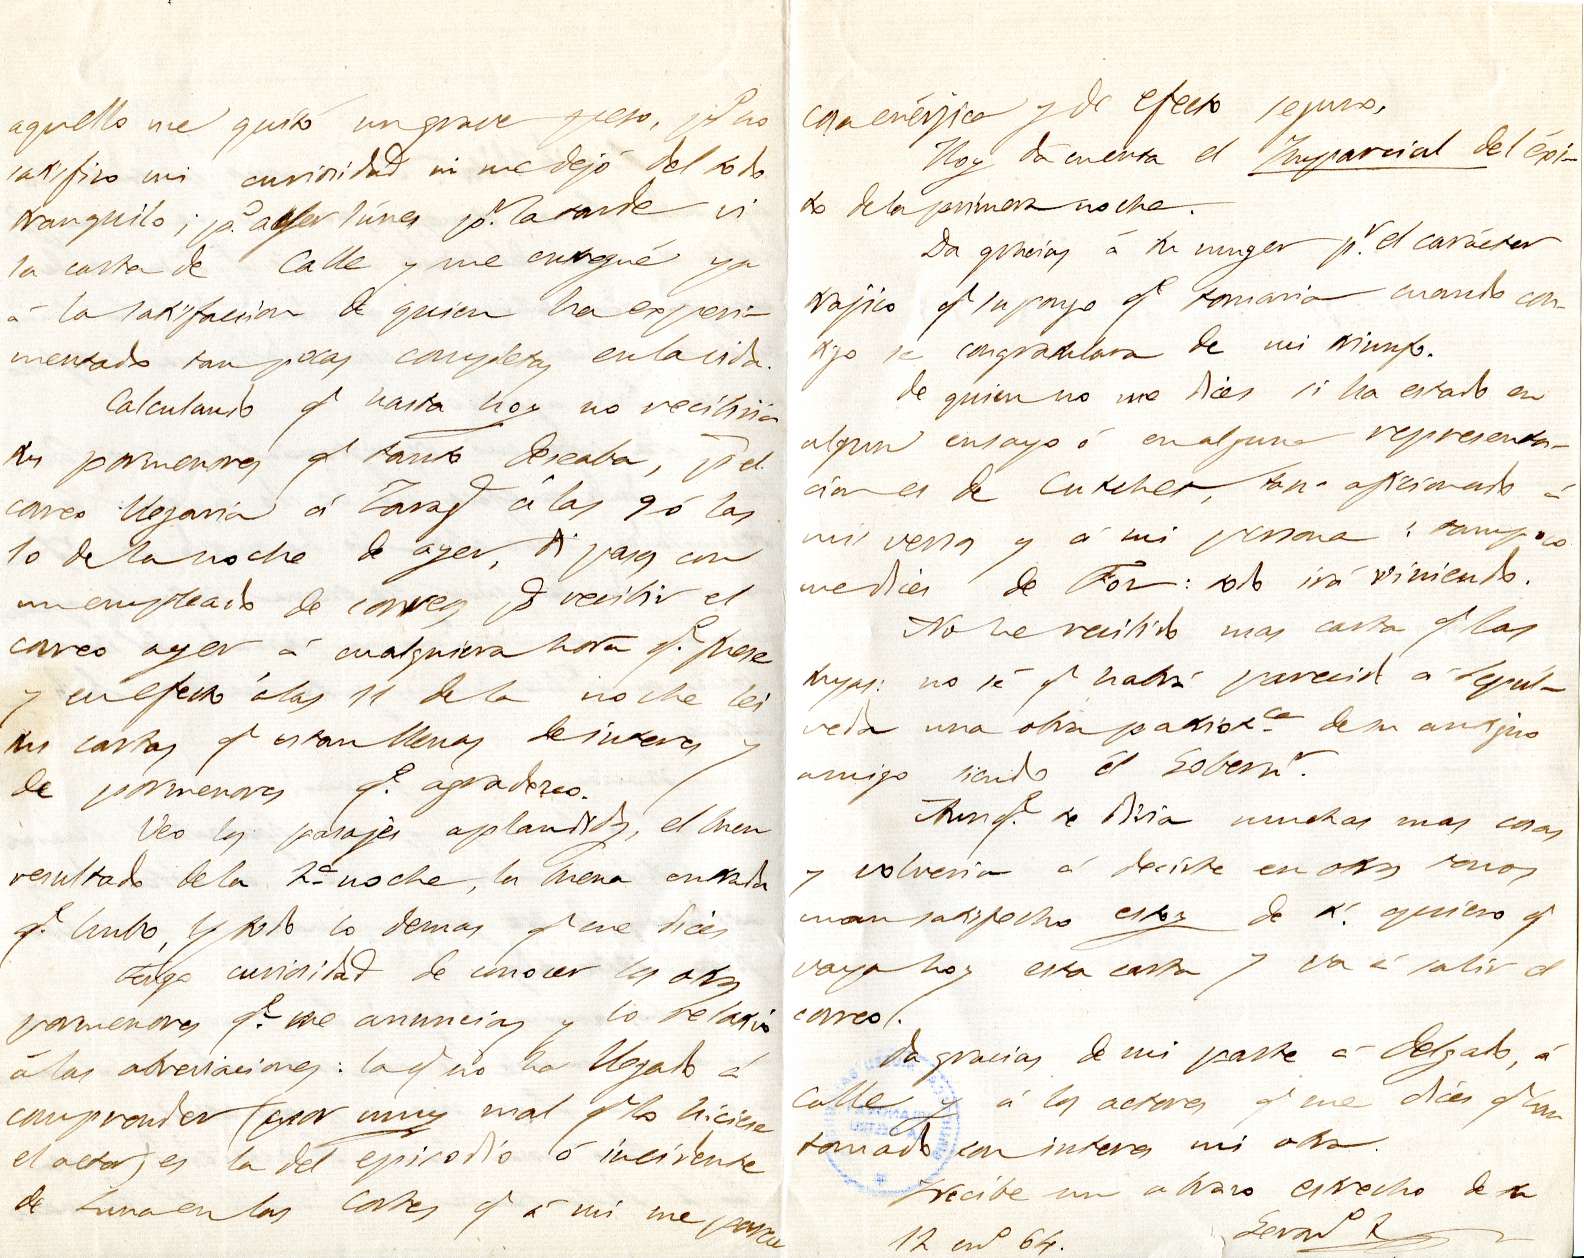 aquello me gustó un grave peso, pº no
satisfizo mi curiosidad ni me dejó del todo
tranquilo; pº ayer lúnes pr la tarde vi
la carta de Calle y me entregué ya
á la satisfaccion de quien ha experi-
mentado tan pocas completas en la vida.
Calculando qe hasta hoy no recibiria
tus pormenores qe tanto deseaba, ps el
correo llegaria á Zaragª á las 9 ó las
10 de la noche de ayer, me puse con
un empleado de correos pª recibir el
correo ayer á cualquiera hora qe fuese
y en efecto á las 11 de la noche lei
tus cartas qe estan llenas de interes y
de pormenores qe agradezco.
Veo los pasajes aplaudidos, el buen
resultado de la 2ª noche, la buena entrada
qe hubo, y todo lo demas qe me dices
Tengo curiosidad de conocer los otros
pormenores qe me anuncias y lo relativo
á las observaciones: la qe no ha llegado á
comprender (por muy mal qe lo hiciese
el actor) es la del episodio ó incidente
de Luna en las Cortes qe á mi me parece
cosa enérjica y de efecto seguro.
Hoy dá cuenta el Imparcial del éxi-
to de la primera noche.
Da gracias á tu muger pr el carácter
trájico qe supongo qe tomaria cuando con-
tigo se congratulara de mi triunfo.
de quien no me dices si ha estado en
algun ensayo ó en alguna representa-
cion es de Cutchet, tan aficionado á
mis versos y á mi persona: tampoco
me dices de Flor: todo irá viniendo.
No he recibido mas carta qe las
tuyas: no sé qe habrá parecido á Sepúl-
veda una obra patriotca de su antiguo
amigo siendo él Goberнr.
Aunqe te diria muchas mas cosas
y volveria á decirte en otros tonos
cuan satisfecho estoy de tí, quiero qe
vaya hoy esta carta y va á salir el
correo.
Da gracias de mi parte á Delgado, á
Calle y á los actores qe me dices qe han
tomado con interes mi obra.
Recibe un abrazo estrecho de tu
12 enº 64.